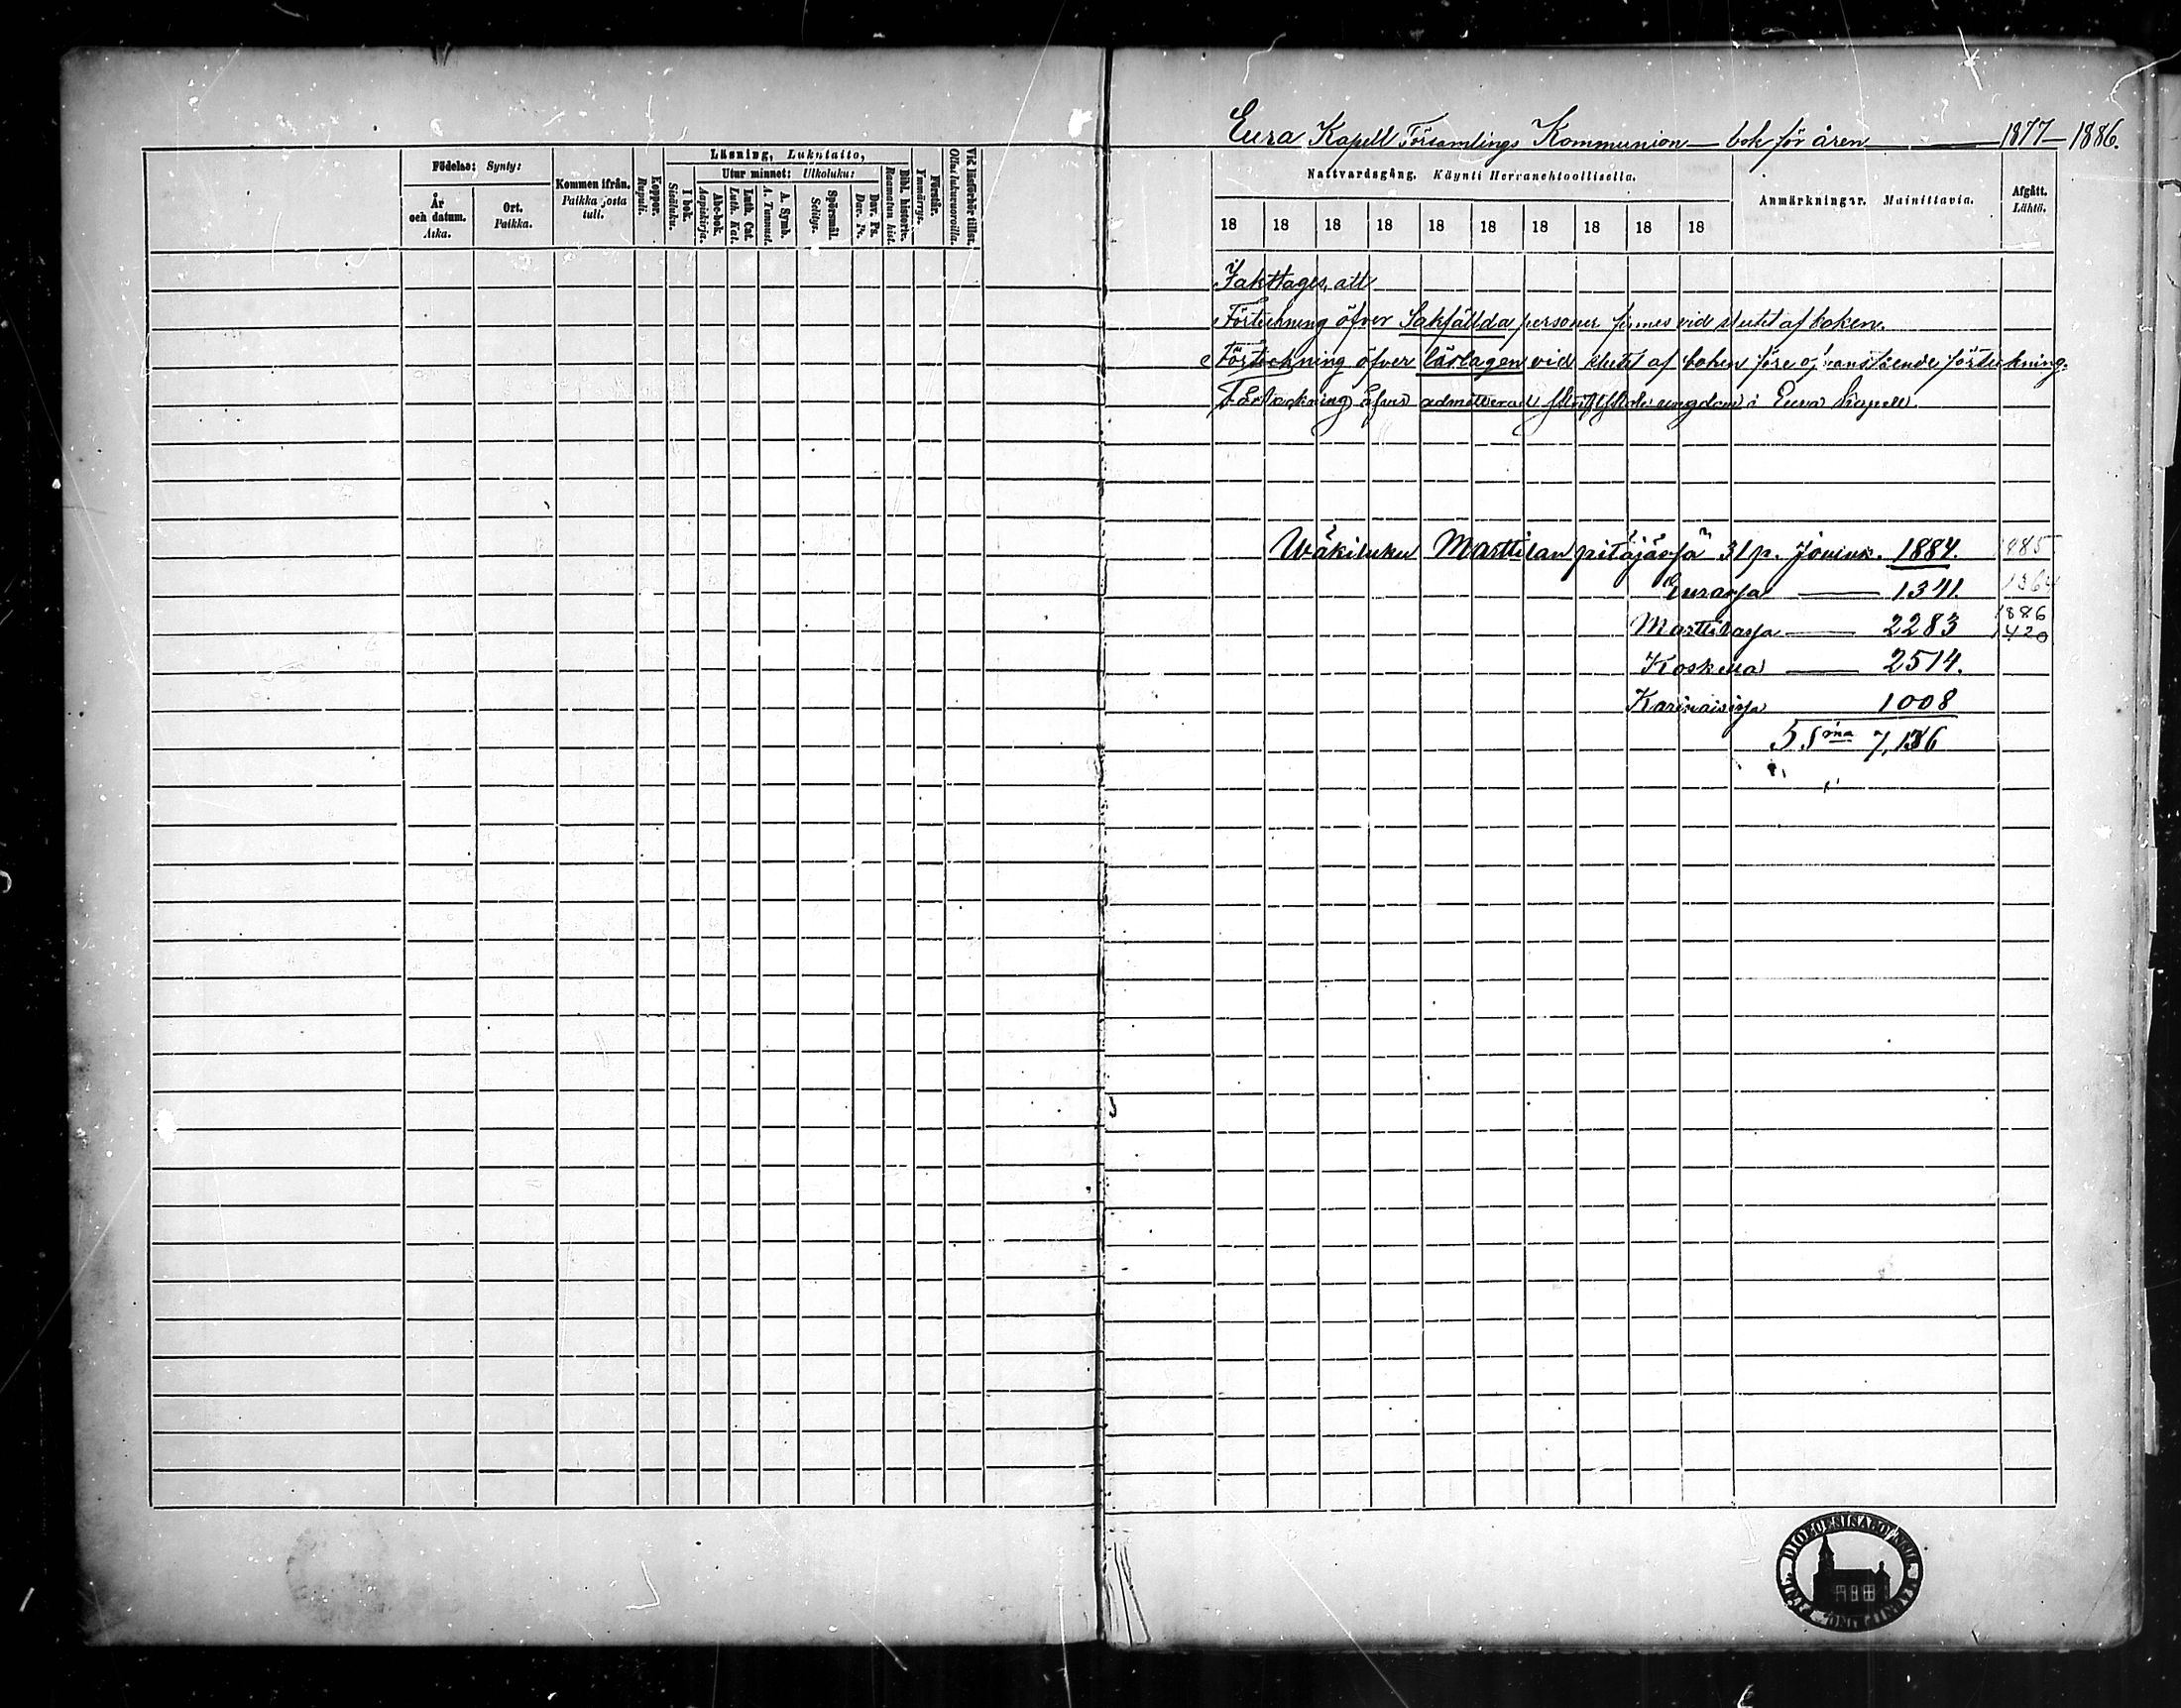 Eura Kapell Församlings Kommunion — bok för åren — 1877 — 1886.
Födelse: Synty:
År och datum. Aika.
Ort. Paikka.
Kommen ifrån. Paikka josta tuli.
Koppor. Rupuli.
Läsning, Lukutaito,
I bok. Sisäluku.
Utur minnet: Ulkoluku:
Abc-bok. Aapiskirja.
Luth. Cat. Luth. Kat.
A. Symb. A. Tunnust.
Spörsmål. Selitys.
Dav. Ps. Dav. Ps.
Bibl. historie. Raamatun hist.
Förstår. Ymmärrys.
Vid läsförhör tillst. Ollut lukuvuoroilla.
Nattvardsgång. Käynti Herranehtoollisella.
18 18 18 18 18 18 18 18 18 18
Anmärkningar. Mainittavia.
Afgått. Lähtö.
Iakttages, att
Förteckning öfver Sakfällda personer finnes vid slutet af boken.
Förteckning öfver läslagen vid slutet af boken före förteckning.
Förteckning öfver admitterad ungdom i Eura Kapell.
Wäkiluku Marttilan pitäjäsſä 31 p. Jouluk. 1884. 1885
Eurasſa — 1341. 1364
Marttilasſa — 2283 1886
1420
Koskella — 2514.
Karinaisisſa 1008
Sma 7,136